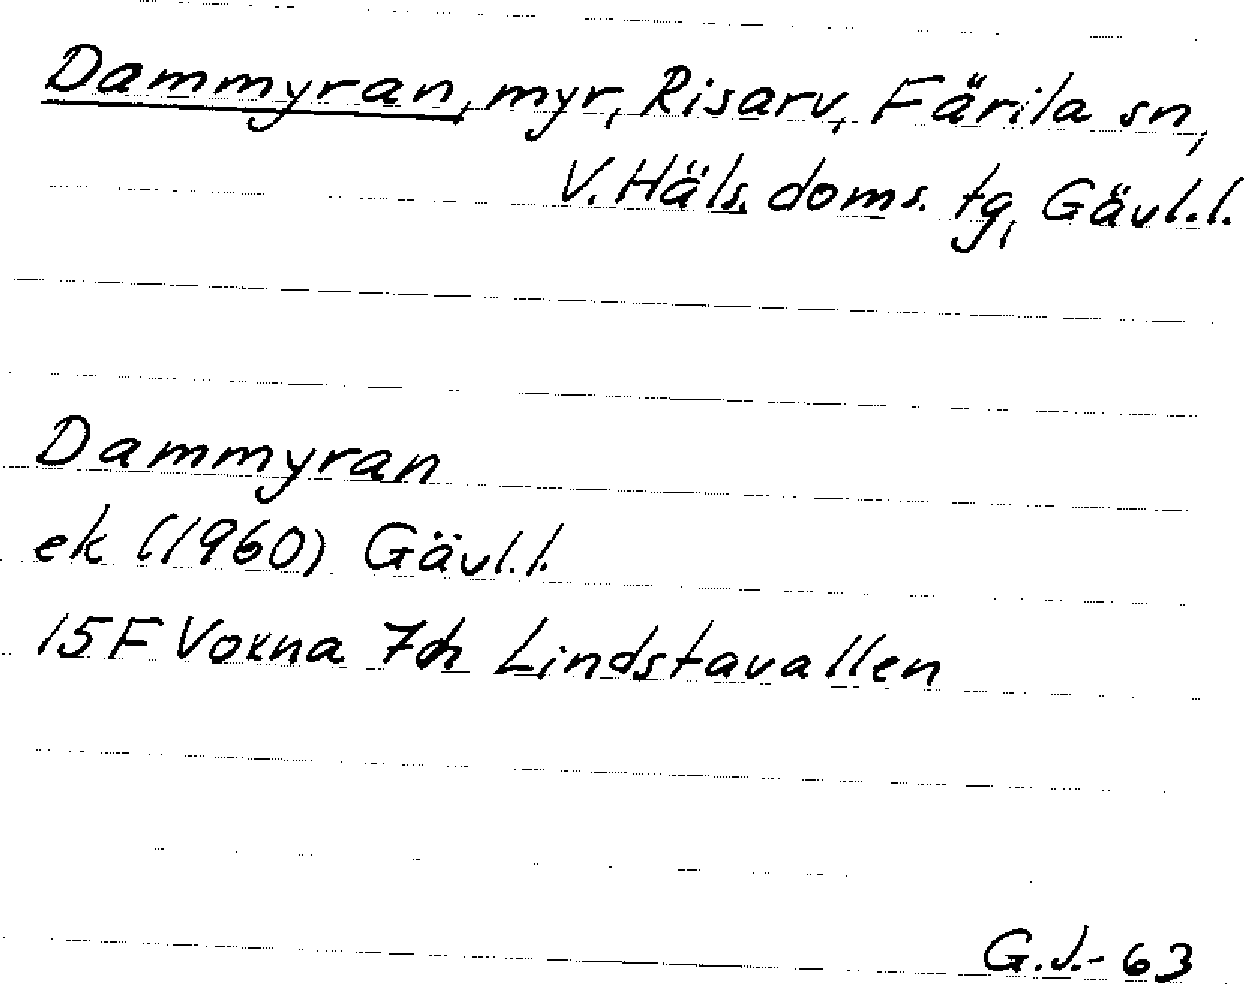 Dammyran, myr, Risarv, Färila sn,
V. Häls. doms. tg, Gävl.l.
Dammyran
ek (1960) Gävl.l.
15F Voxna 7h Lindstavallen
G.J.-63